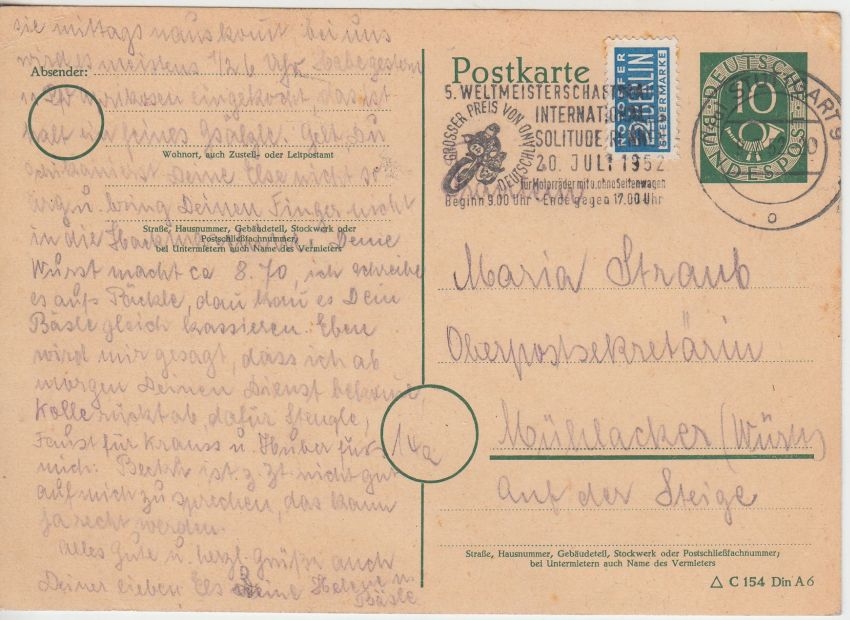 sie mittags nauskommt bei uns
wird es meistens 1/2 6 Uhr. Habe gestern
eingekocht, das ist
halt ein feines Gsälzle. Gelt, Du
Deine Else nicht so
u. bring Deinen Finger nicht
in die Deine
Wurst macht ca 8.70, ich schreibe
es aufs Päckle, dan kan es Dein
Bäsle gleich kassieren. Eben
wird mir gesagt, dass ich ab
morgen Deinen Dienst bekome,
Kolle rückt ab, dafür Stengle,
Faust für Krauss u. Huber für
mich. ist z. Zt. nicht gut
auf mich zu sprechen, das kann
ja recht werden.
Alles Gute u. herzl. Grüße auch
Deiner lieben Els Deine Helene u.
Bäsle
Absender:
Wohnort, auch Zustell- oder Leitpostamt
Straße, Hausnummer, Gebäudeteil, Stockwerk oder
Postschließfachnummer;
bei Untermietern auch Name des Vermieters
Postkarte
NOTOPFER
2 BERLIN
STEUERMARKE
DEUTSCHE BUNDESPOST
10
STUTTGART 9
5. WELTMEISTERSCHAFTSLAUF
GROSSER PREIS VON DEUTSCHLAND
INTERNATIONALES
SOLITUDE-RENNEN
20. JULI 1952
für Motorräder mit u. ohne Seitenwagen
Beginn 9.00 Uhr - Ende gegen 17.00 Uhr
Maria Straub
Oberpostsekretärin
14a
Mühlacker (Württ)
Auf der Steige
Straße, Hausnummer, Gebäudeteil, Stockwerk oder Postschließfachnummer;
bei Untermietern auch Name des Vermieters
△ C 154 Din A 6